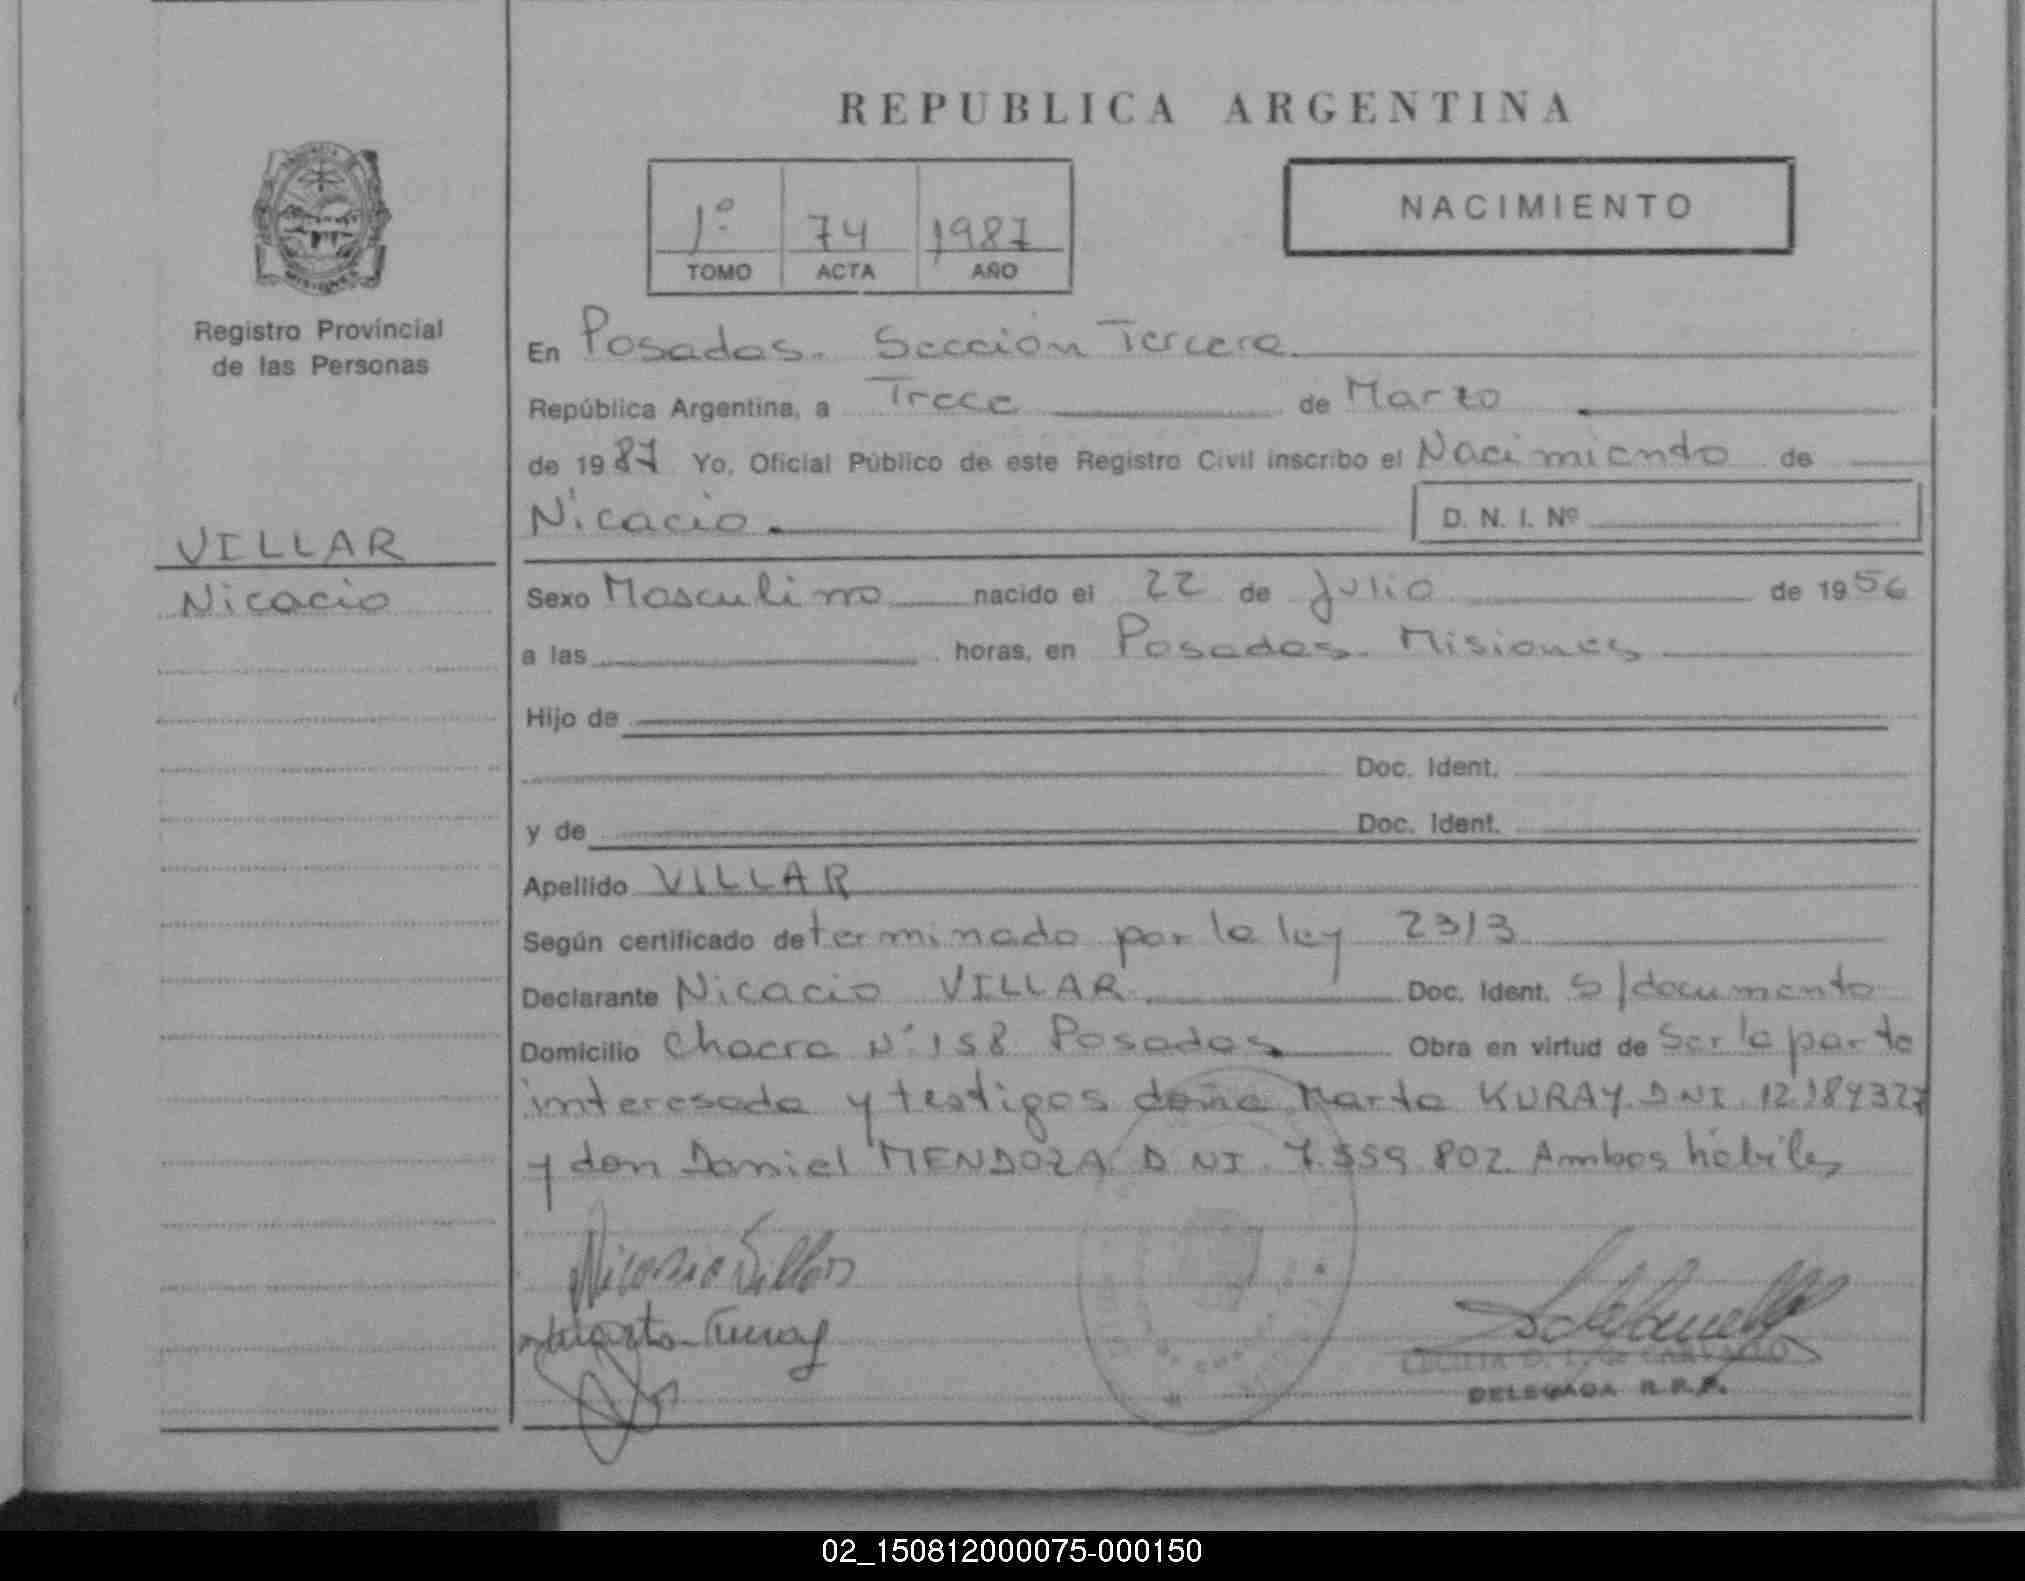 REPUBLICA ARGENTINA
1º 74 1987
TOMO ACTA AÑO
NACIMIENTO
Registro Provincial
de las Personas
VILLAR
Nicacio
En Posadas. Sección Tercera
República Argentina, a Trece de Marzo
de 1987 Yo, Oficial Público de este Registro Civil inscribo el Nacimiento de
Nicacio
D. N. I. Nº
Sexo Masculino nacido el 22 de Julio de 1956
a las horas, en Posadas. Misiones
Hijo de
Doc. Ident.
y de Doc. Ident.
Apellido VILLAR
Según certificado determinado por la ley 2313
Declarante Nicacio VILLAR Doc. Ident. S/documento
Domicilio Chacra Nº 158 Posadas Obra en virtud de Ser la parte
interesada y testigos doña Marta KURAY. DNI
y don Daniel MENDOZA DNI. 7.559.802. Ambos hábiles
Nicacio Villar
Marta Curay
CECILIA D. L. de
DELEGADA R.P.P.
02_150812000075-000150